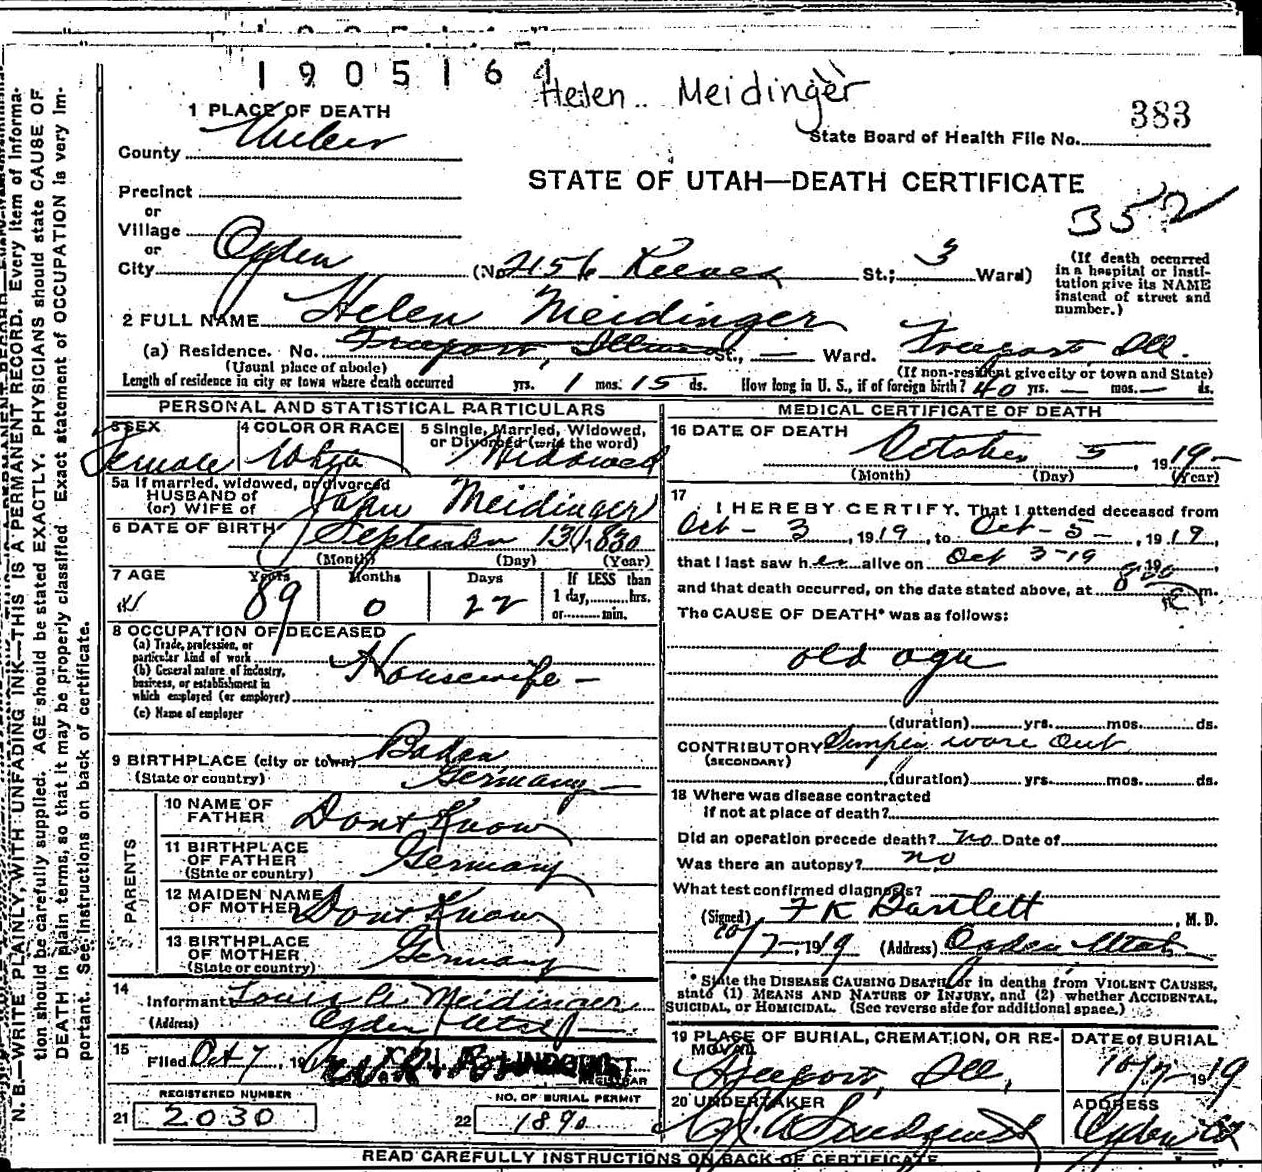 1905164
Helen Meidinger
1 PLACE OF DEATH
383
State Board of Health File No.
County Weber
STATE OF UTAH—DEATH CERTIFICATE
352
Precinct
or
Village
or
City Ogden (No. 2156 Reeves St.; 3 Ward)
(If death occurred in a hospital or institution give its NAME instead of street and number.)
2 FULL NAME Helen Meidinger
(a) Residence. No. Freeport, Illinois St., — Ward. Freeport, Ill.
(Usual place of abode) (If non-resident give city or town and State)
Length of residence in city or town where death occurred yrs. 1 mos. 15 ds. How long in U. S., if of foreign birth? 40 yrs. — mos. — ds.
PERSONAL AND STATISTICAL PARTICULARS
3 SEX 4 COLOR OR RACE 5 Single, Married, Widowed, or Divorced (write the word)
Female White Widowed
5a If married, widowed, or divorced
HUSBAND of
(or) WIFE of John Meidinger
6 DATE OF BIRTH September 13 1830
(Month) (Day) (Year)
7 AGE Years Months Days If LESS than
89 0 22 1 day, hrs.
or min.
8 OCCUPATION OF DECEASED
(a) Trade, profession, or
particular kind of work Housewife —
(b) General nature of industry,
business, or establishment in
which employed (or employer)
(c) Name of employer
9 BIRTHPLACE (city or town) Baden
(State or country) Germany —
PARENTS
10 NAME OF FATHER Dont Know
11 BIRTHPLACE OF FATHER Germany
(State or country)
12 MAIDEN NAME OF MOTHER Dont Know
13 BIRTHPLACE OF MOTHER Germany
(State or country)
14 Informant Louis A Meidinger
(Address) Ogden Utah
15 Filed Oct 7, 19
REGISTRAR
REGISTERED NUMBER NO. OF BURIAL PERMIT
21 2030 22 1890
MEDICAL CERTIFICATE OF DEATH
16 DATE OF DEATH
October 5, 1919
(Month) (Day) (Year)
17 I HEREBY CERTIFY, That I attended deceased from
Oct - 3, 1919, to Oct - 5 -, 1919,
that I last saw her alive on Oct 3 - 19, 19
and that death occurred, on the date stated above, at 8 m.
The CAUSE OF DEATH* was as follows:
old age
(duration) yrs. mos. ds.
CONTRIBUTORY Simply wore out
(SECONDARY)
(duration) yrs. mos. ds.
18 Where was disease contracted
if not at place of death?
Did an operation precede death? no Date of
Was there an autopsy? no
What test confirmed diagnosis?
(Signed) F K Bartlett, M. D.
10/7 - 1919 (Address) Ogden Utah
* State the DISEASE CAUSING DEATH, or in deaths from VIOLENT CAUSES,
state (1) MEANS AND NATURE OF INJURY, and (2) whether ACCIDENTAL,
SUICIDAL, or HOMICIDAL. (See reverse side for additional space.)
19 PLACE OF BURIAL, CREMATION, OR REMOVAL DATE of BURIAL
Freeport, Ill, 10/7 1919
20 UNDERTAKER ADDRESS
Lindquist Ogden
READ CAREFULLY INSTRUCTIONS ON BACK OF CERTIFICATE
N. B.—WRITE PLAINLY, WITH UNFADING INK—THIS IS A PERMANENT RECORD. Every item of information
should be carefully supplied. AGE should be stated EXACTLY. PHYSICIANS should state CAUSE OF
DEATH in plain terms, so that it may be properly classified. Exact statement of OCCUPATION is very important.
See instructions on back of certificate.